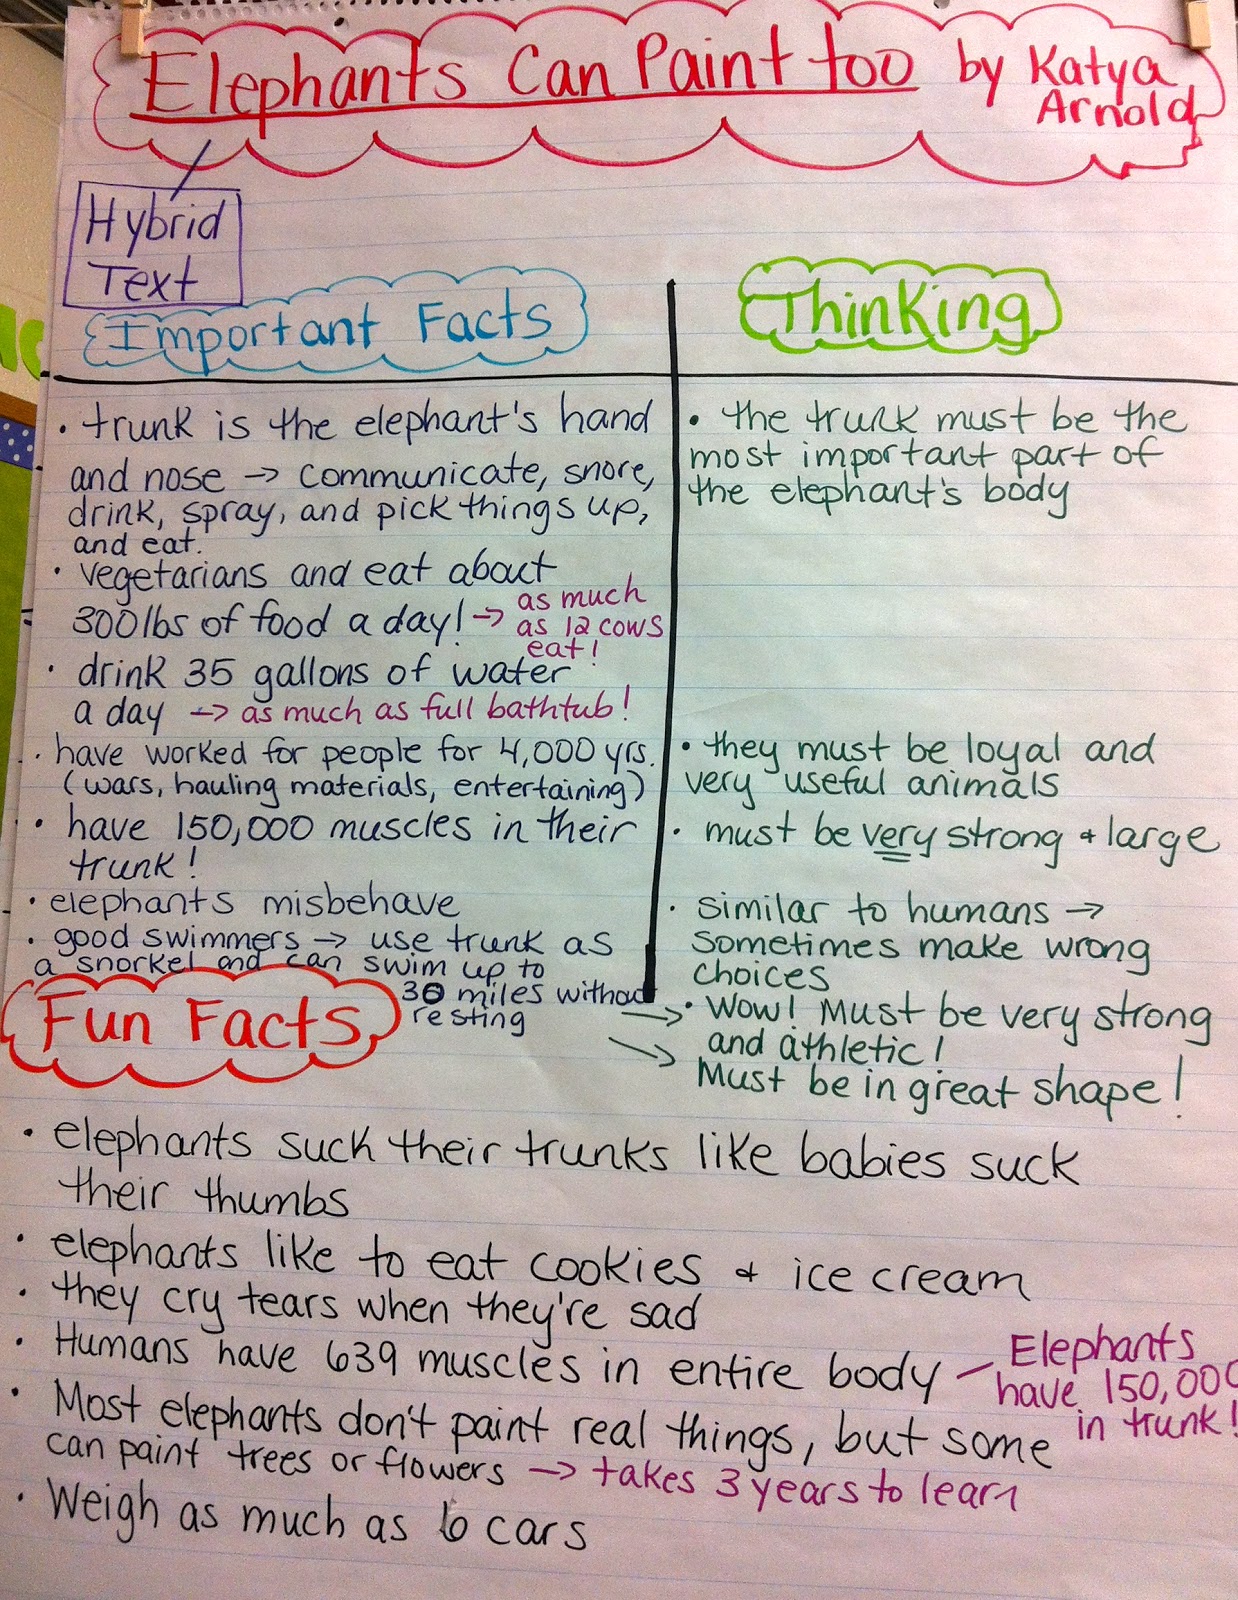 Elephants Can Paint too by Katya
Arnold
Hybrid
Text
Important Facts
• trunk is the elephant's hand
and nose → communicate, snore,
drink, spray, and pick things up,
and eat.
• vegetarians and eat about
300lbs of food a day! → as much
as 12 cows
eat!
• drink 35 gallons of water
a day → as much as full bathtub!
• have worked for people for 4,000 yrs.
(wars, hauling materials, entertaining)
• have 150,000 muscles in their
trunk!
• elephants misbehave
• good swimmers → use trunk as
a snorkel and can swim up to
30 miles without
resting
Thinking
• the trunk must be the
most important part of
the elephant's body
• they must be loyal and
very useful animals
• must be very strong + large
• similar to humans →
sometimes make wrong
choices
→ • Wow! Must be very strong
and athletic!
→ Must be in great shape!
Fun Facts
• elephants suck their trunks like babies suck
their thumbs
• elephants like to eat cookies + ice cream
• they cry tears when they're sad
• Humans have 639 muscles in entire body – Elephants
have 150,000
in trunk!
• Most elephants don't paint real things, but some
can paint trees or flowers → takes 3 years to learn
• Weigh as much as 6 cars